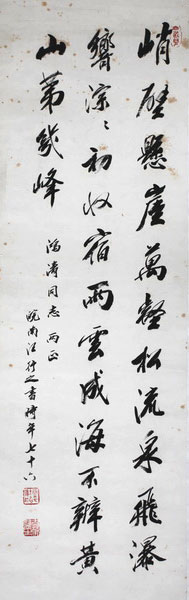 峭壁懸崖萬壑松流泉飛瀑
響淙々初收宿雨雲成海不辨黃
山第幾峰
同志兩正
皖南汪行之書時年七十六